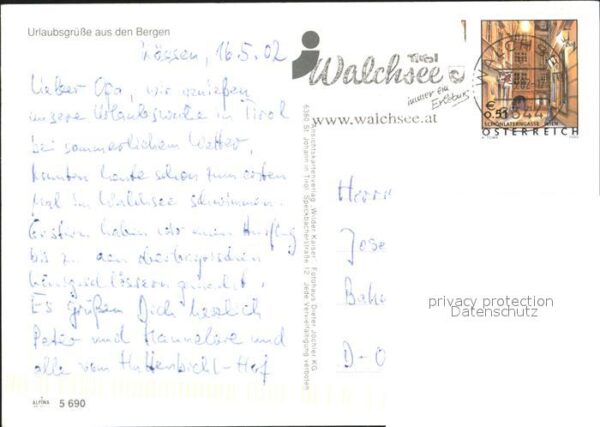 Urlaubsgrüße aus den Bergen
Kössen, 16.5.02
Lieber Opa, wir genießen
unsere Urlaubswoche in Tirol
bei sommerlichem Wetter,
konnten heute schon zum ersten
Mal im Walchsee schwimmen.
Gestern haben wir einen Ausflug
bis zu den oberbayrischen
Königsschlössern gemacht.
Es grüßen Dich herzlich
Peter und Hannelore und
alle vom Huttenbichl-Hof
5 690
Ansichtskartenverlag Wilder Kaiser Fotohaus Dieter Jöchler KG
6380 St. Johann in Tirol, Speckbacherstraße 12 Jede Vervielfältigung verboten
Tirol
Walchsee
immer ein
Erlebnis
www.walchsee.at
WALCHSEE
€
0,51
SCHÖNLATERNGASSE WIEN
ÖSTERREICH
Herrn
Jose
Bahn
D-O
privacy protection
Datenschutz